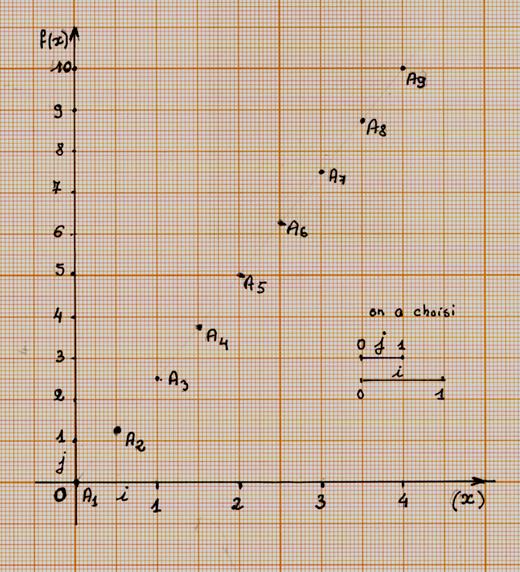 f(x)
10
A9
9
A8
8
A7
7
A6
6
A5
5
on a choisi
4
A4
0 j 1
3
A3
i
2
0 1
A2
1
j
0 A1 i 1 2 3 4 (x)